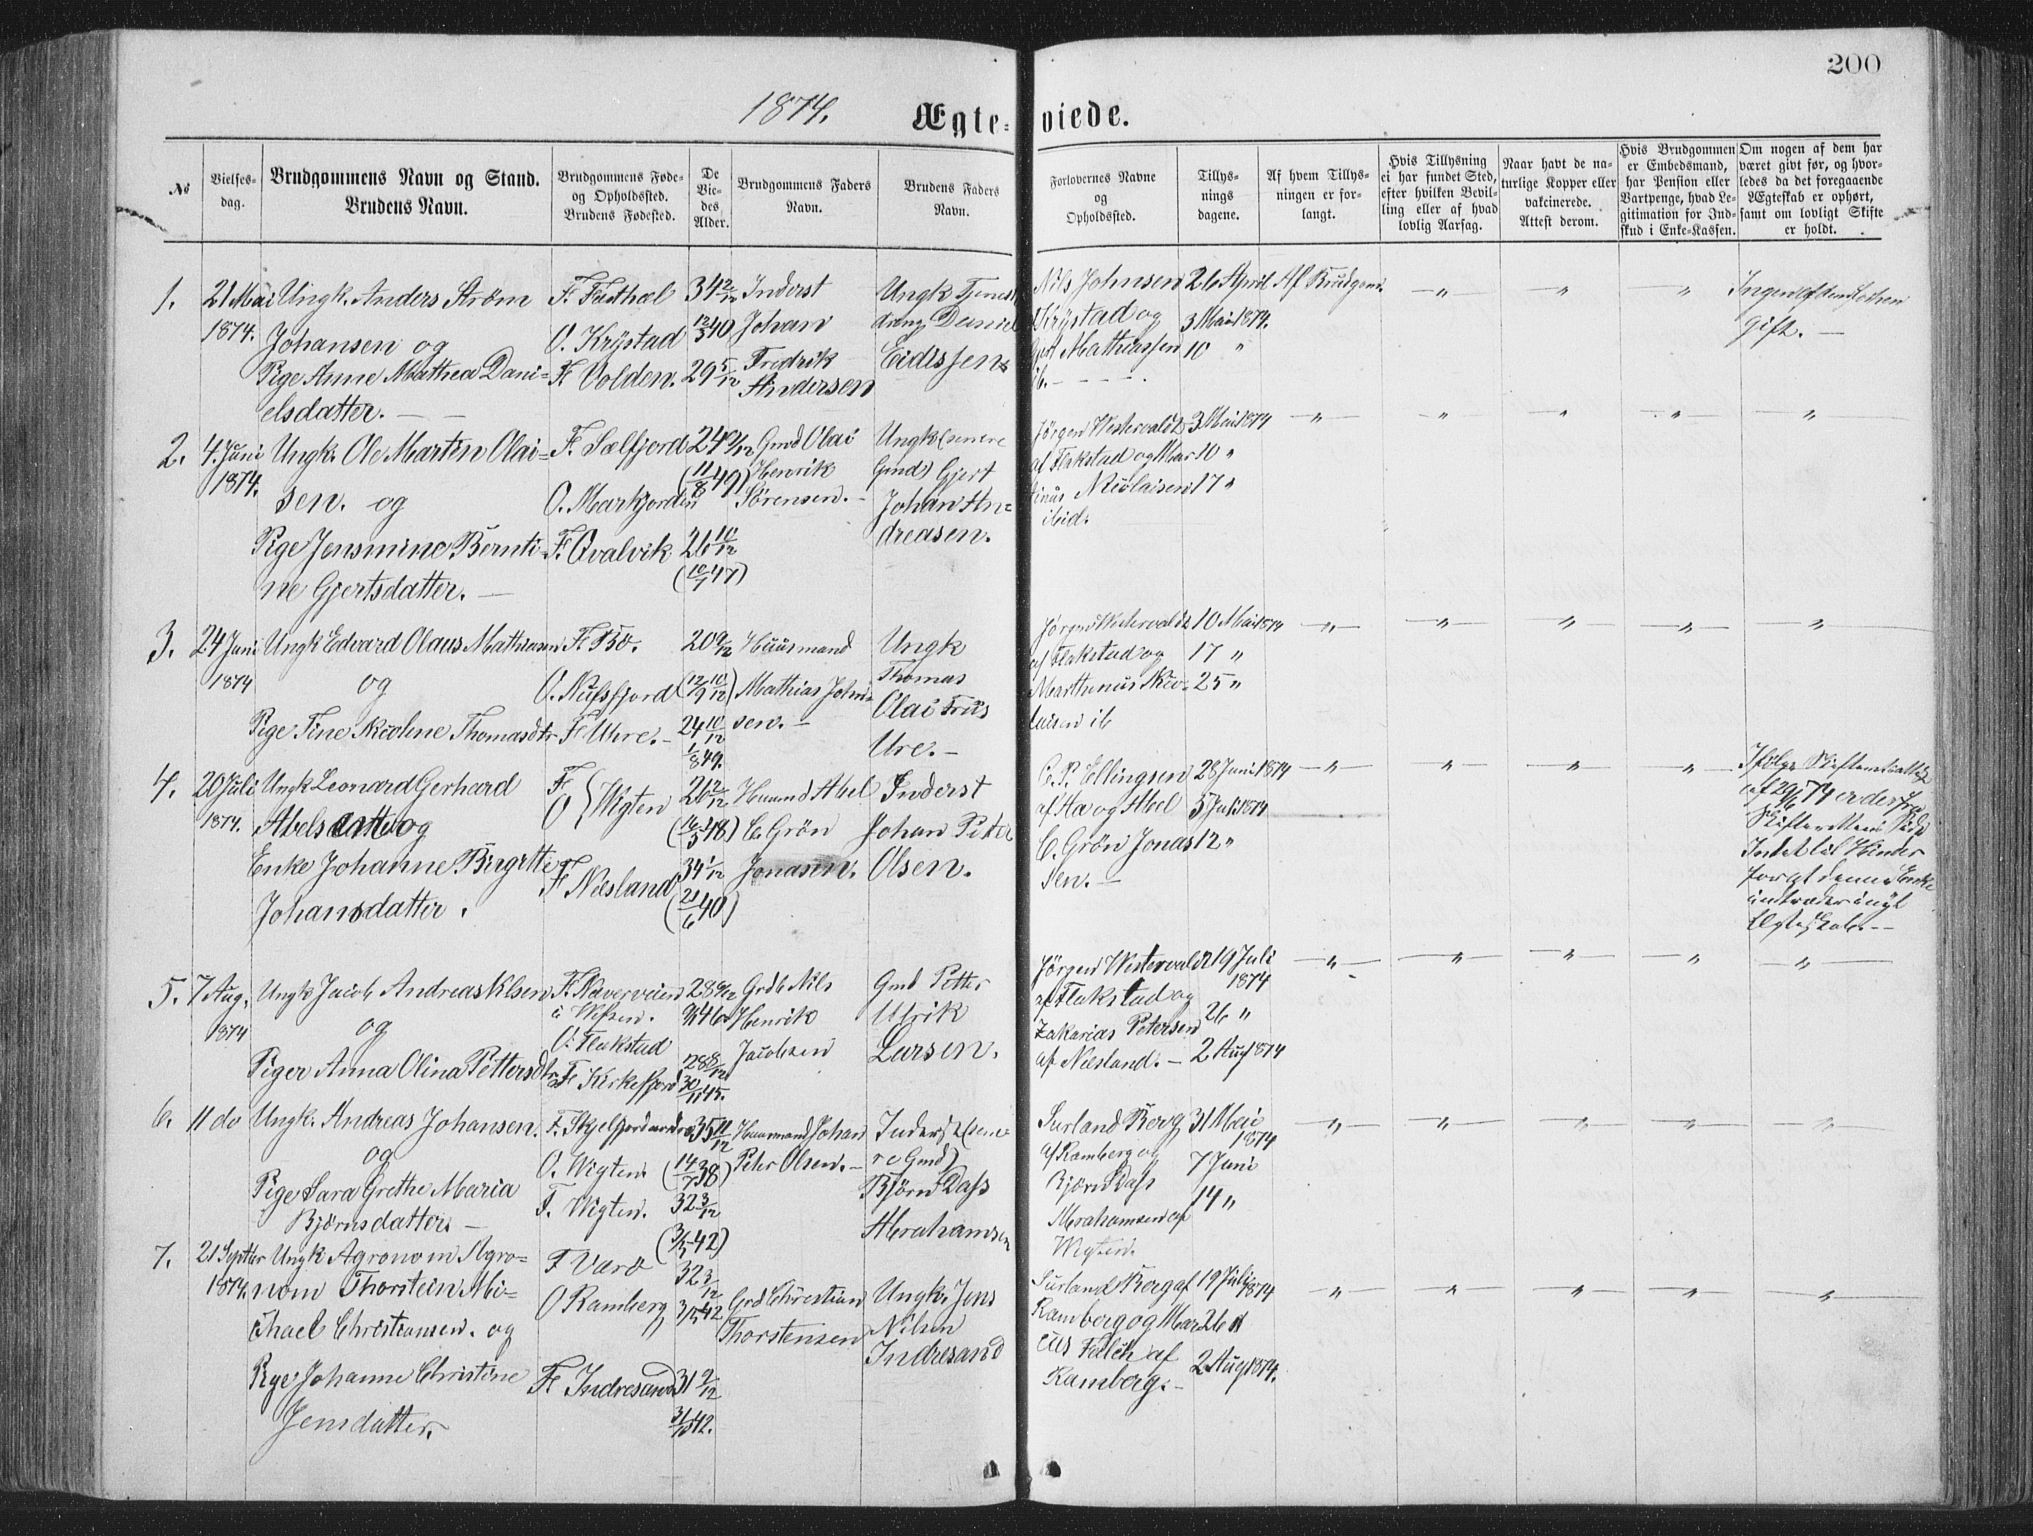 200
1874.
Ægte-
viede.
No
Vielses-
dag.
Brudgommens Navn og Stand.
Brudens Navn.
Brudgommens Føde-
og Opholdssted.
Brudens Fødested.
De
Vie-
des
Alder.
Brudgommens Faders
Navn.
Brudens Faders
Navn.
Forlovernes Navne
og
Opholdssted.
Tillys-
nings
dagene.
Af hvem Tillys-
ningen er for-
langt.
Hvis Tillysning
ei har fundet Sted,
efter hvilken Bevil-
ling eller af hvad
lovlig Aarsag.
Naar havt de na-
turlige Kopper eller
vakcinerede.
Attest derom.
Hvis Brudgommen
er Embedsmand,
har Pension eller
Vartpenge, hvad Le-
gitimation for Ind-
skud i Enke-Kassen.
Om nogen af dem har
været givt før, og hvor-
ledes da det foregaaende
Ægteskab er ophørt,
samt om lovligt Skifte
er holdt.
1.
21 Mai
1874.
Ungk. Anders Strøm
Johansen og
Pige Anne Mathea Dani-
elsdatter. —
F.
O. Krystad
F. Volden.
34 2/12
12/3 40
29 5/12
Inderst
Johan
Fredrik
Andersen
Ungk
Daniel
Nils Johnsen
Krystad og
Mathiassen
ib. - - - -
26 April
3 Mai 1874.
10 "
Af Brudgom.
— " —
— " —
"
Ingen af dem
Gift. —
2.
4. Juni
1874.
Ungk. Ole Martin Olai-
sen. og
Pige Jensmine Bernti-
ne Gjertsdatter. —
F. Selfjord
O. Markjorden
F. Qvalvik
24 9/12
(11/8 49)
26 10/12
(10/7 47)
Gmd Olai
Henrik
Sørensen. -
Ungk (senere
Gmd) Gjert
Johan An-
dreasen.
Jørgen Westervald
af Flakstad og Mar
tinus Nicolaisen
ibid.
3 Mai 1874
10 "
17 "
— " —
— " —
"
"
"
3.
24 Juni
1874
Ungk Edvard Olaus Mathiasen
og
Pige Tine Nicoline Thomasdtr
F. Bø.
O. Nufsfjord
F. Uhre. -
20 9/12
24 10/12
1/8 49.
Huusmand
Mathias John-
sen. -
Ungk
Thomas
Olai Friis
Ure. -
Jørgen Westervald
af Flakstad og
Marthinus Nico-
laisen ib
10 Mai 1874
17 "
25 "
— " —
— " —
"
— " —
"
4.
20 Juli
1874.
Ungk Leonard Gerhard
Abels og
Enke Johanne Birgitte
Johansdatter.
F.
O } Wigten
F. Nesland
26 2/12
34 1/12
(21/6 40)
Huusmd Abel
C. Grøn
Jonasen.
Inderst
Johan Peter
Olsen.
C. P. Ellingsen
af Ha og Abel
C. Grøn Jonas
sen. -
28 Juni 1874
5 Juli 1874
12 "
— " —
— " —
— " —
— " —
Ifølge
af 29/6 74 er der fra
Skifterettens Side
Intet til Hinder
for at denne Enke
indtræder i nyt
Ægteskab. - -
5.
7 Aug.
1874
Ungk Jacob Andreas Nilsen
og
Piger Anna Olina Pettersdtr
F. Neverveien
i Vefsen.
O. Flakstad
F. Kirkefjord
28
28 8/12
30/11 45.
Grdb Nils
Henrik
Jacobsen
Gmd Petter
Ulrik
Larsen.
Jørgen Westervald
af Flakstad og
Zakarias Petersen
af Nesland. -
19 Juli
1874
26 "
2 Aug 1874
— " —
— " —
— " —
— " —
"
6.
11 do
Ungk. Andreas Johansen.
og
Pige Sara Grethe Maria
Bjørnsdatter. —
F. Skjelfjord
O. Wigten.
F. Wigten.
35 11/12
(14/7 38)
32 3/12
(3/5 42)
Huusmand Johan
Peter Olsen. -
Inderst (sene
re Gmd)
Bjørn Dass
Abrahamsen
Surland Borg
af Ramberg og
Bjørn Dass
Abrahamsen af
Wigten.
31 Mai
1874
7 Juni
14 "
— " —
— " —
— " —
— " —
"
7.
21 Septbr
1874.
Ungk Agronom Agro-
nom Thorstein Mi-
chael Christiansen. og
Pige Johanne Christine
Jensdatter.
F Varø
O Ramberg
F. Indresand
32 3/12
3/5 42
31 2/12
Grd Christian
Thorstensen
Ungk. Jens
Nilsen
Indresand
Surland Borg af
Ramberg og Mar
cus Falch af
Ramberg. -
19 Juli 1874
26 "
2 Aug 1874.
— " —
— " —
— " —
— " —
"